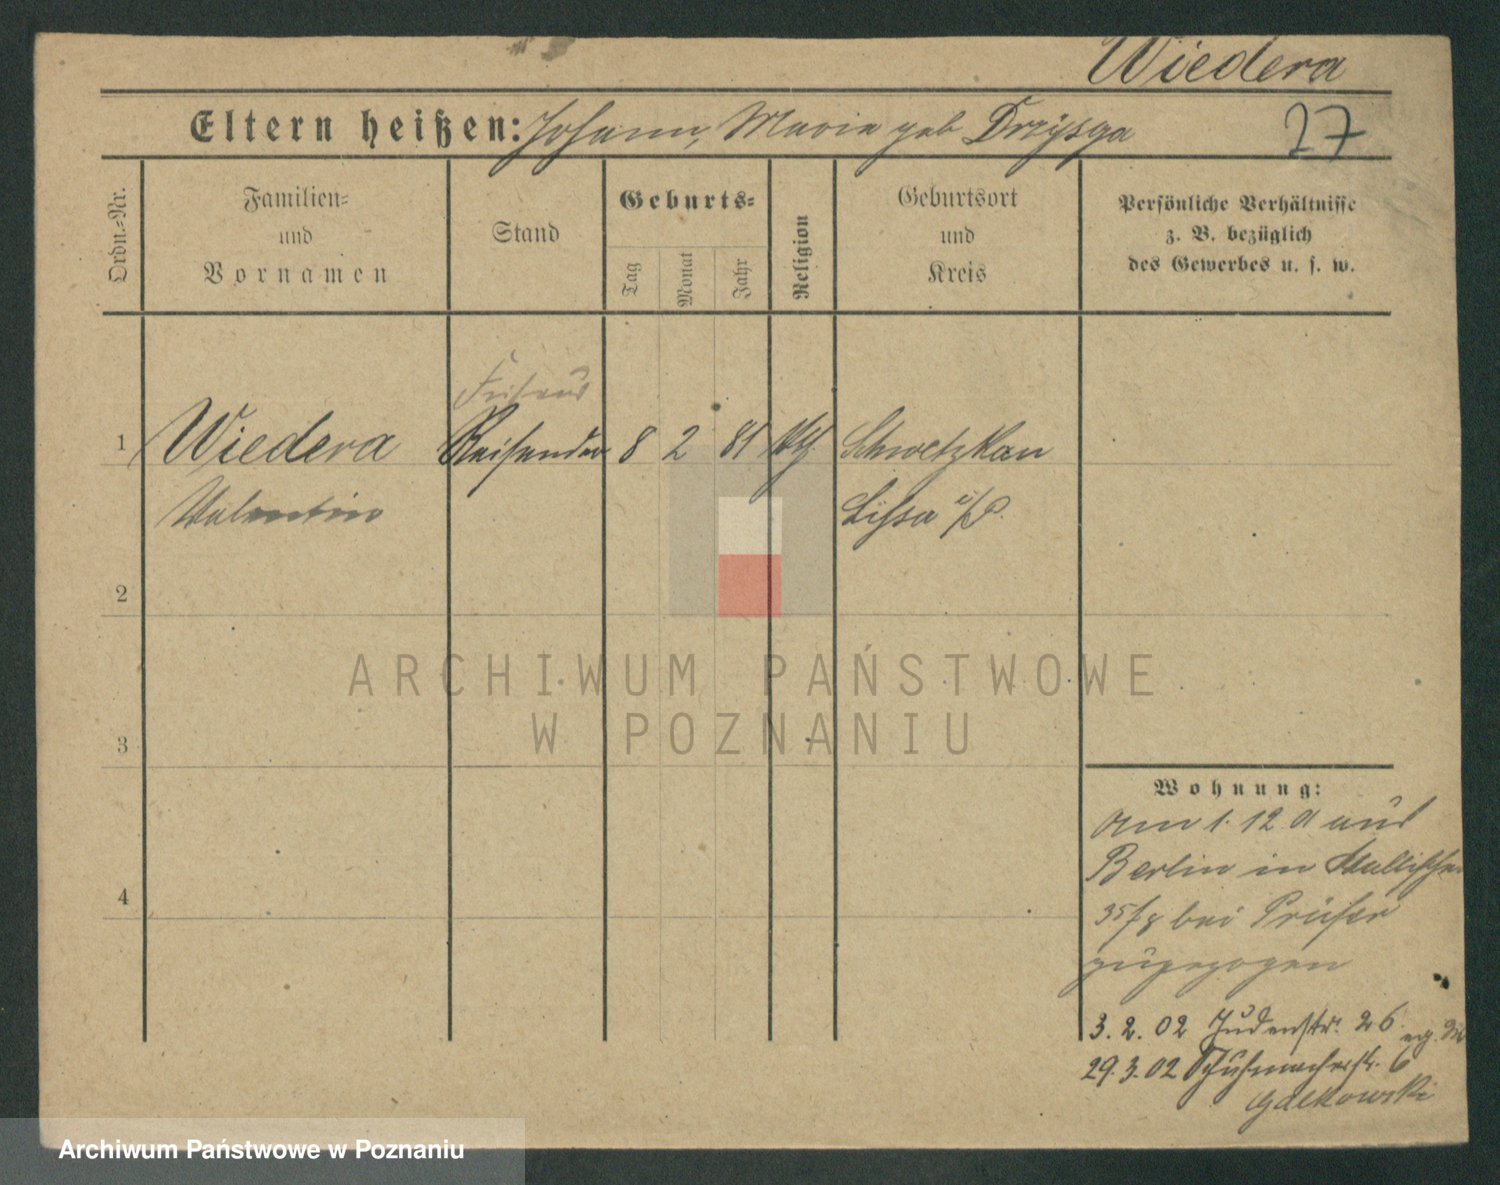 Wiedera
Eltern heißen: Johann, Marie geb Drzysga
27
Ordn.=Nr.
Familien=
und
Vornamen
Stand
Geburts=
Tag
Monat
Jahr
Religion
Geburtsort
und
Kreis
Persönliche Verhältnisse
z. B. bezüglich
des Gewerbes u. s. w.
Friseur
1 Wiedera Reisender 8 2 81 kth Schwetzkau
Valentin Lissa i/P.
2
ARCHIWUM PAŃSTWOWE
W POZNANIU
3
Wohnung:
Am 1. 12 01 aus
Berlin in Hallische
4
35/8 bei Prüfer
zugezogen
3. 2. 02 Judenstr. 26
29. 3. 02 Schuhmacherstr. 6
Galkowski
Archiwum Państwowe w Poznaniu